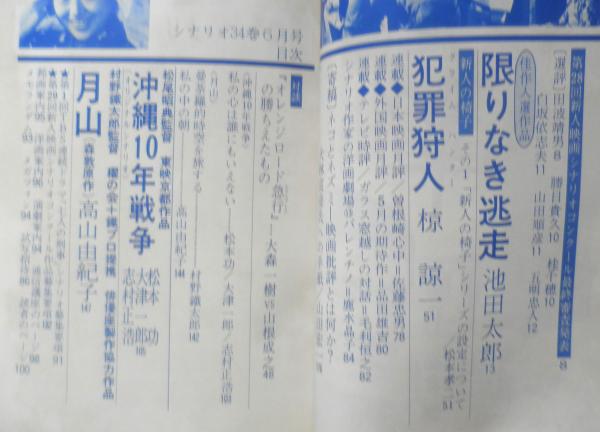 シナリオ34巻6月号
目次
第28回新人映画シナリオコンクール最終審査発表 8
[選評] 田波靖男8 勝目貴久10 桂千穂10
白坂依志夫11 山田順彦11 五明忠人12
佳作入選作品
限りなき逃走 池田太郎 13
新人の椅子 その1「新人の椅子」シリーズの設定について/松本孝二 51
犯罪狩人 椋諒一 51
クライムハンター
連載◆日本映画月評/曽根崎心中=佐藤忠男78
連載◆外国映画月評/5月の期待作=品田雄吉80
連載◆テレビ時評/ガラス窓越しの対話=毛利恒之82
シナリオ作家の洋画劇場⑨バレンチノ=鹿水晶子84
[寄稿] ネコとネズミ―映画批評とは何か?
対談
『オレンジロード急行』
の勝ちえたもの―大森一樹VS山根成之48
〈沖縄10年戦争〉
私の心は誰にもいえない―松本功/大津一郎/志村正浩103
〈月山〉
曼荼羅的時空を旅する―村野鐵太郎142
私の中の朝―高山由紀子144
松尾昭典監督 東映京都作品
沖縄10年戦争 松本功 大津一郎 志村正浩 105
村野鐵太郎監督 俳優座製作協力作品
月山 (森敦原作) 高山由紀子 147